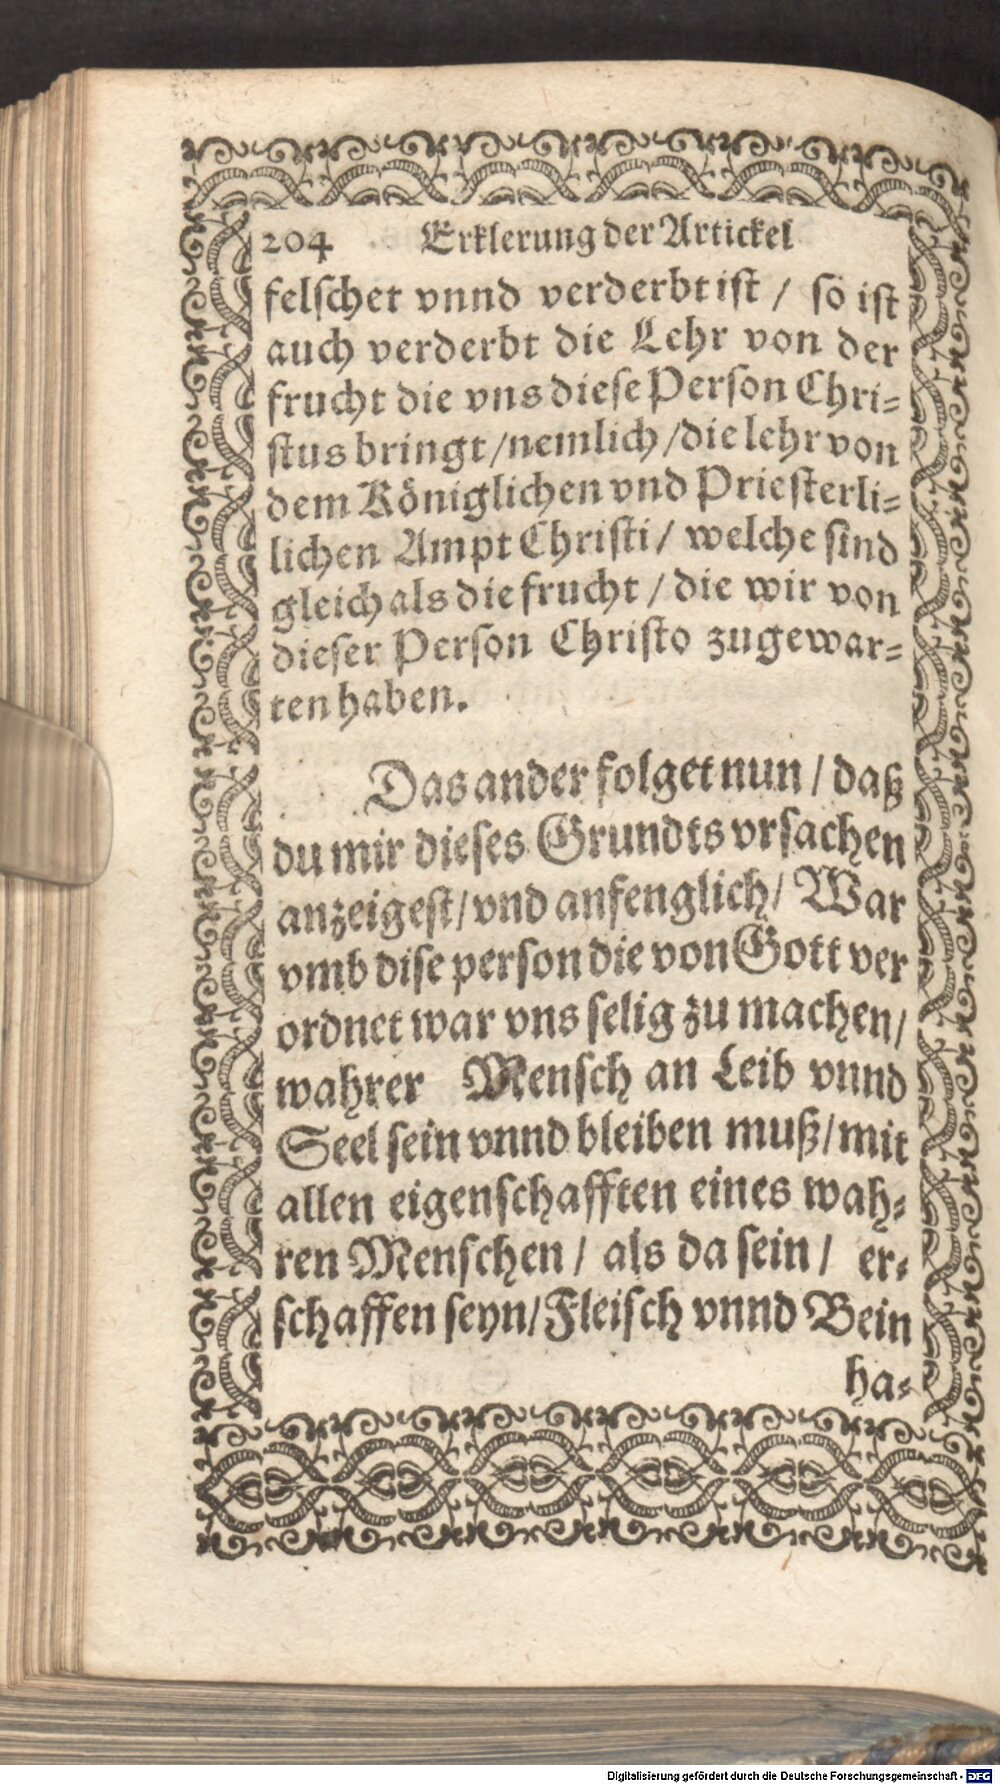 204 Erklerung der Artickel
felschet vnnd verderbt ist / so ist
auch verderbt die Lehr von der
frucht die vns diese Person Chri=
stus bringt / nemlich / die lehr von
dem Königlichen vnd Priesterli=
lichen Ampt Christi / welche sind
gleich als die frucht / die wir von
dieser Person Christo zugewar=
ten haben.
Das ander folget nun / daß
du mir dieses Grundts vrsachen
anzeigest / vnd anfenglich / War
vmb dise person die von Gott ver
ordnet war vns selig zu machen /
wahrer Mensch an Leib vnnd
Seel sein vnnd bleiben muß / mit
allen eigenschafften eines wah=
ren Menschen / als da sein / er=
schaffen seyn / Fleisch vnnd Bein
ha=
Digitalisierung gefördert durch die Deutsche Forschungsgemeinschaft - DFG